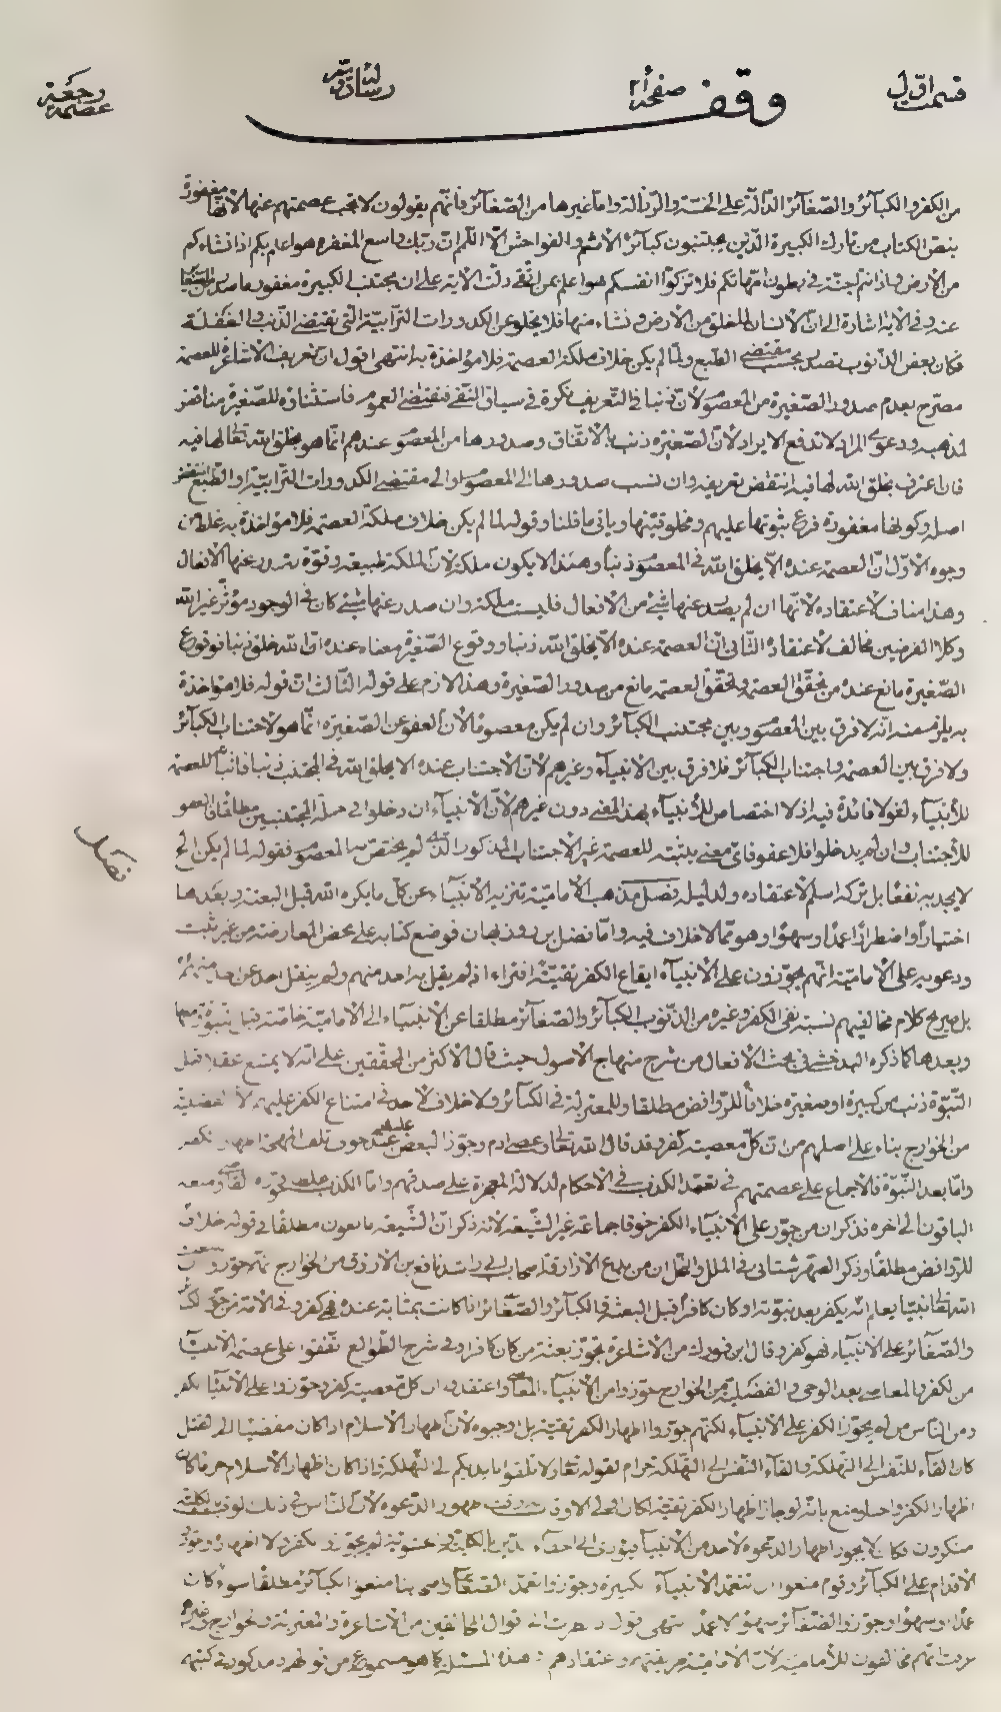 قسمت اوّل
وقف
صفحة ٢١
رجعة
عصمة
من الكفر والكبائر والصّغائر الدّالّة على الخسّة والرّذالة وامّا غيرها من الصّغائر فانّهم يقولون لا تجب عصمتهم عنها لانّها مغفورة
بنصّ الكتاب من تارك الكبيرة الّذين يجتنبون كبائر الاثم والفواحش الّا اللّمم انّ ربّك واسع المغفرة هو اعلم بكم اذ انشاءكم
من الارض واذ انتم اجنّة فى بطون امّهاتكم فلا تزكّوا انفسكم هو اعلم بمن اتّقى دلّت الاية على ان مجتنب الكبيرة مغفور ما صدر من الصّغائر
عنه وفى الاية اشارة الى انّ الانسان لمّا خلق من الارض ونشاء منها فلا يخلو عن الكدورات التّرابيّة الّتى تقتضى الذّنب والغفلة
فكان بعض الذّنوب تصدر بحسب مقتضى الطّبع ولمّا لم يكن خلاف ملكة العصمة فلا مؤاخذة به انتهى اقول ان تعريف الاشاعرة للعصمة
مصرّح بعدم صدور الصّغيرة من المعصوم لانّ ذنبا فى التّعريف نكرة فى سياق النّفى فتقتضى العموم فاستثناؤه للصّغيرة مناقض
لمذهبه ودعوى المراد لا تدفع الايراد لانّ الصّغيرة ذنب بالاتّفاق وصدورها من المعصوم عندهم انّما هو بخلق الله تعالى لها فيه
فان اعترف بخلق الله لها فيه انتقض تعريفه وان نسب صدورها الى المعصوم او الى مقتضى الكدورات التّرابيّة او الطّبع انتقض
اصله وكونها مغفورة فرع ثبوتها عليهم ومخلوقيّتها وياتى ما قلنا وقوله لمّا لم يكن خلاف ملكة العصمة فلا مؤاخذة به غلط من
وجوه الاوّل انّ العصمة عنده الّا يخلق الله فى المعصوم ذنبا وهذا لا يكون ملكة لانّ الملكة طبيعة وقوّة تصدر عنها الافعال
وهذا مناف لاعتقاده لانّها ان لم يصدر عنها شئ من الافعال فليست ملكة وان صدر عنها شئ كان فى الوجود مؤثّر غير الله
وكلا الفرضين مخالف لاعتقاده الثّانى انّ العصمة عنده الّا يخلق الله ذنبا ووقوع الصّغيرة معناه عنده انّ الله خلق ذنبا فوقوع
الصّغيرة مانع عنده من تحقّق العصمة وتحقّق العصمة مانع من صدور الصّغيرة وهذا لازم على قوله الثّالث انّ قوله فلا مؤاخذة
به يلزم منه انّه لا فرق بين المعصوم وبين مجتنب الكبائر وان لم يكن معصوما لانّ العفو عن الصّغيرة انّما هو لاجتناب الكبائر
ولا فرق بين العصمة واجتناب الكبائر فلا فرق بين الانبياء وغيرهم لانّ الاجتناب عنده الّا يخلق الله فى المجتنب ذنبا فاثباته للعصمة
للانبياء لغو لا فائدة فيه اذ لا اختصاص للانبياء بهذا المعنى دون غيرهم لانّ الانبياء ان دخلوا فى جملة المجتنبين مطلقا فالعفو
للاجتناب وان لم يدخلوا فلا عفو فاىّ معنى يثبته للعصمة غير الاجتناب المذكور الّذى لم يختصّ به المعصوم فقوله لمّا لم يكن الخ
لا يجديه نفعا بل تركه اسلم لاعتقاده ولدليله فصل مذهب الاماميّة تنزيه الانبياء عن كلّ ما يكره الله قبل البعثة وبعدها
اختيارا واضطرارا عمدا وسهوا وهو ممّا لا خلاف فيه وامّا فضل بن روزبهان فوضع كتابه على محض المعارضة من غير تثبّت
ودعويه على الاماميّة انّهم يجوّزون على الانبياء ايقاع الكفر تقيّة افتراء اذ لم يقل به احد منهم ولم ينقل احد عن احد منهم
بل صريح كلام مخالفيهم نسبة نفى الكفر وغيره من الذّنوب الكبائر والصّغائر مطلقا عن الانبياء الى الاماميّة خاصّة قبل النّبوّة
وبعدها كما ذكره البدخشى فى بحث الافعال من شرح منهاج الاصول حيث قال الاكثر من المحقّقين على انّه لا يمتنع عقلا قبل
النّبوّة ذنب من كبيرة او صغيرة خلافا للرّوافض مطلقا وللمعتزلة فى الكبائر ولا خلاف لاحد فى امتناع الكفر عليهم الّا الفضيليّة
من الخوارج بناء على اصلهم من انّ كلّ معصية كفر وقد قال الله تعالى وعصى ادم وجوّز البعض عليهم عند خوف تلف المهجة اظهار الكفر
وامّا بعد النّبوّة فالاجماع على عصمتهم فى تعمّد الكذب فى الاحكام لدلالة المعجزة على صدقهم وامّا الكذب غلطا فجوّزه القاضى ومنعه
الباقون الى اخره فذكر ان من جوّز على الانبياء الكفر خوفا جماعة غير الشّيعة لانّه ذكر انّ الشّيعة مانعون مطلقا فى قوله خلافا
للرّوافض مطلقا وذكر الشّهرستانى فى الملل والنّحل ان من بدع الازارقة اصحاب ابى راشد نافع بن الازرق من الخوارج
الله تعالى نبيّا يعلم انّه يكفر بعد نبوّته او كان كافرا قبل البعثة والكبائر والصّغائر اذا كانت بمثابة عنده فهى كفر وفى الامّة من جوّز الكبائر
والصّغائر على الانبياء فهو كفر وقال ابن فورك من الاشاعرة يجوز بعثة من كان كافرا وفى شرح الطّوالع اتّفقوا على عصمة الانبياء
من الكفر والمعاصى بعد الوحى والفضيليّة من الخوارج جوّزوا من الانبياء المعاصى واعتقدوا ان كلّ معصية كفر وجوّزوا على الانبياء الكفر
ومن النّاس من لم يجوّز الكفر على الانبياء لكنّهم جوّزوا اظهار الكفر تقيّة بل اوجبوه لانّ اظهار الاسلام اذا كان مفضيا الى القتل
كان القاء للنّفس الى التّهلكة والقاء النّفس الى التّهلكة حرام لقوله تعالى ولا تلقوا بايديكم الى التّهلكة فاذا كان اظهار الاسلام حراما كان
اظهار الكفر واجبا ومنع بانّه لو جاز اظهار الكفر تقيّة لكان اولى الاوقات وقت ظهور الدّعوة لانّ النّاس فى ذلك الوقت
منكرون فكان لا يجوز اظهار الدّعوة لاحد من الانبياء فيؤدّى الى اخفاء الدّين بالكلّيّة
الاقدام على الكبائر وقوم منعوا ان تتعمّد الانبياء الكبيرة وجوّزوا تعمّد الصّغائر واصحابنا منعوا الكبائر مطلقا سواء كان
عمدا وسهوا وجوّزوا الصّغائر سهوا لا عمدا انتهى فقول
انّهم مخالفون للاماميّة لانّ الاماميّة طريقتهم واعتقادهم فى هذه المسئلة كما هو مسموع من قولهم ومذكور فى كتبهم
فصل